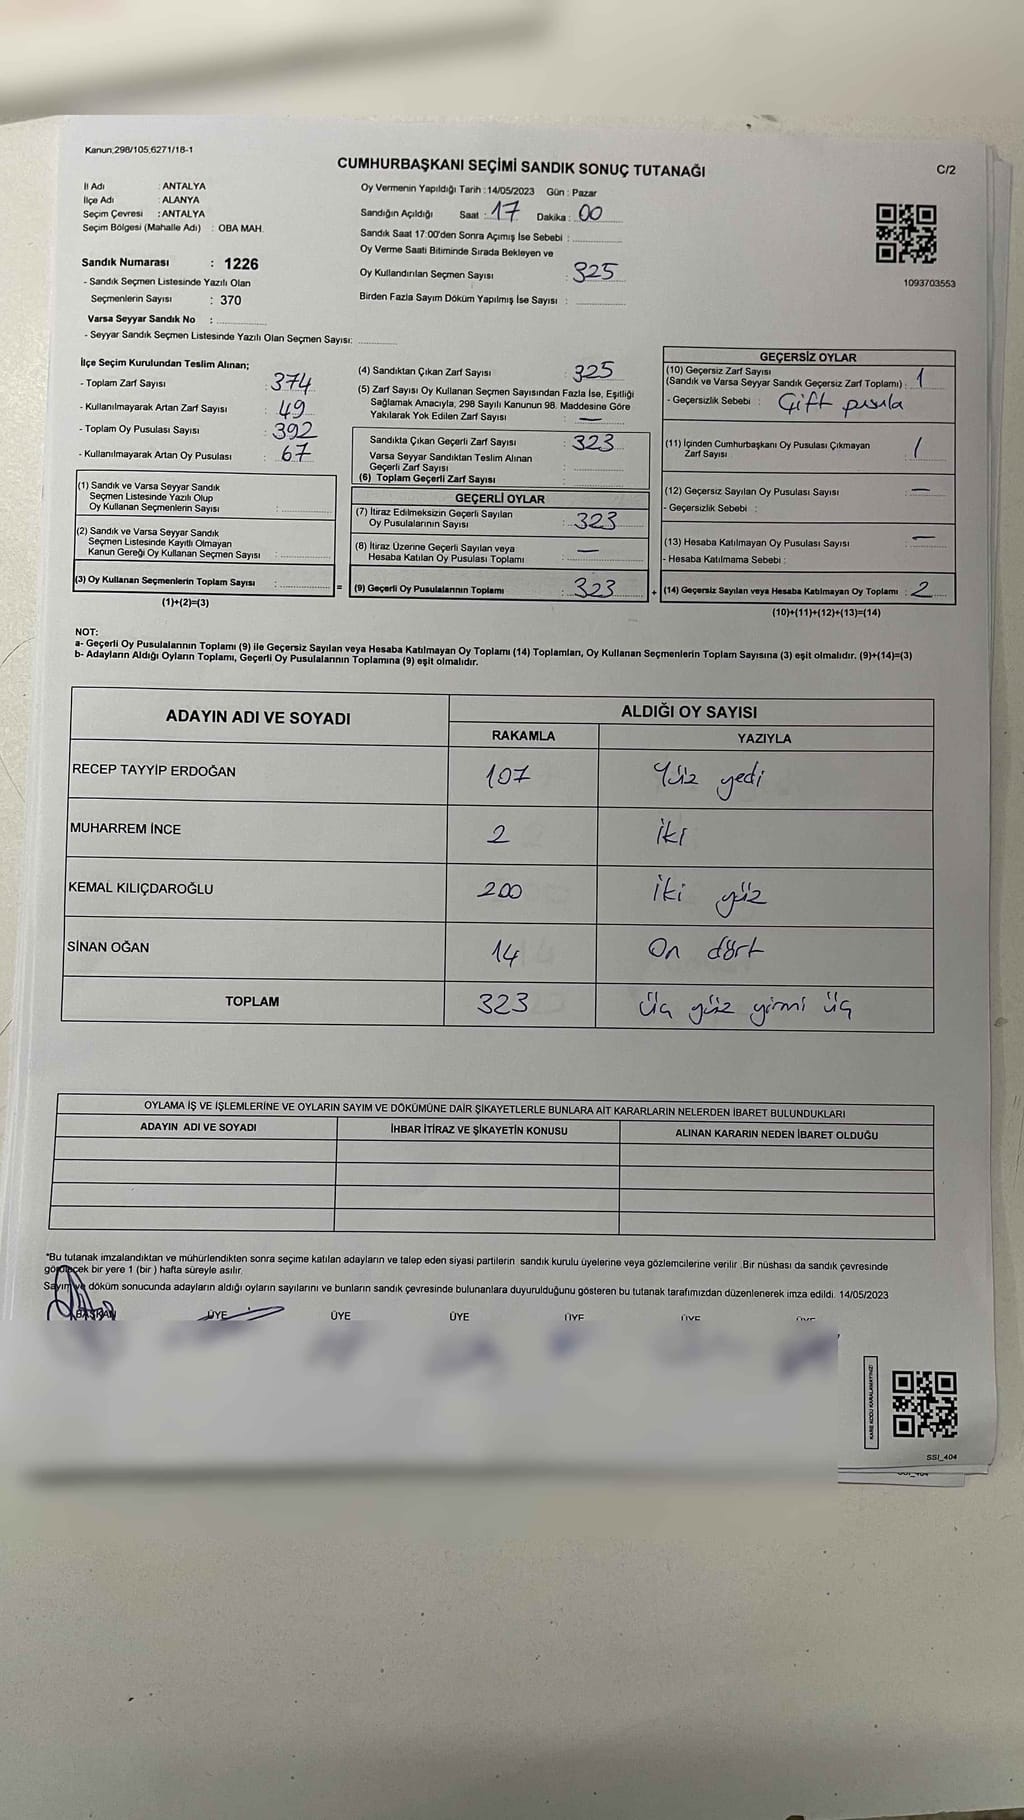 Kanun,298/105,6271/18-1
CUMHURBAŞKANI SEÇİMİ SANDIK SONUÇ TUTANAĞI
C/2
İl Adı : ANTALYA
İlçe Adı : ALANYA
Seçim Çevresi : ANTALYA
Seçim Bölgesi (Mahalle Adı) : OBA MAH.
Oy Vermenin Yapıldığı Tarih : 14/05/2023 Gün : Pazar
Sandığın Açıldığı Saat : 17 Dakika : 00
Sandık Saat 17:00'den Sonra Açımış İse Sebebi :
Oy Verme Saati Bitiminde Sırada Bekleyen ve
Oy Kullandırılan Seçmen Sayısı : 325
Birden Fazla Sayım Döküm Yapılmış İse Sayısı :
1093703553
Sandık Numarası : 1226
- Sandık Seçmen Listesinde Yazılı Olan
Seçmenlerin Sayısı : 370
Varsa Seyyar Sandık No :
- Seyyar Sandık Seçmen Listesinde Yazılı Olan Seçmen Sayısı:
İlçe Seçim Kurulundan Teslim Alınan;
- Toplam Zarf Sayısı : 374
- Kullanılmayarak Artan Zarf Sayısı : 49
- Toplam Oy Pusulası Sayısı : 392
- Kullanılmayarak Artan Oy Pusulası : 67
(1) Sandık ve Varsa Seyyar Sandık
Seçmen Listesinde Yazılı Olup
Oy Kullanan Seçmenlerin Sayısı :
(2) Sandık ve Varsa Seyyar Sandık
Seçmen Listesinde Kayıtlı Olmayan
Kanun Gereği Oy Kullanan Seçmen Sayısı :
(3) Oy Kullanan Seçmenlerin Toplam Sayısı :
(1)+(2)=(3)
=
(4) Sandıktan Çıkan Zarf Sayısı : 325
(5) Zarf Sayısı Oy Kullanan Seçmen Sayısından Fazla İse, Eşitliği
Sağlamak Amacıyla, 298 Sayılı Kanunun 98. Maddesine Göre
Yakılarak Yok Edilen Zarf Sayısı : —
Sandıkta Çıkan Geçerli Zarf Sayısı : 323
Varsa Seyyar Sandıktan Teslim Alınan
Geçerli Zarf Sayısı :
(6) Toplam Geçerli Zarf Sayısı :
GEÇERLİ OYLAR
(7) İtiraz Edilmeksizin Geçerli Sayılan
Oy Pusulalarının Sayısı : 323
(8) İtiraz Üzerine Geçerli Sayılan veya
Hesaba Katılan Oy Pusulası Toplamı : —
(9) Geçerli Oy Pusulalarının Toplamı : 323
+
GEÇERSİZ OYLAR
(10) Geçersiz Zarf Sayısı
(Sandık ve Varsa Seyyar Sandık Geçersiz Zarf Toplamı) : 1
- Geçersizlik Sebebi : Çift pusula
(11) İçinden Cumhurbaşkanı Oy Pusulası Çıkmayan
Zarf Sayısı : 1
(12) Geçersiz Sayılan Oy Pusulası Sayısı : —
- Geçersizlik Sebebi :
(13) Hesaba Katılmayan Oy Pusulası Sayısı : —
- Hesaba Katılmama Sebebi :
(14) Geçersiz Sayılan veya Hesaba Katılmayan Oy Toplamı : 2
(10)+(11)+(12)+(13)=(14)
NOT:
a- Geçerli Oy Pusulalarının Toplamı (9) ile Geçersiz Sayılan veya Hesaba Katılmayan Oy Toplamı (14) Toplamları, Oy Kullanan Seçmenlerin Toplam Sayısına (3) eşit olmalıdır. (9)+(14)=(3)
b- Adayların Aldığı Oyların Toplamı, Geçerli Oy Pusulalarının Toplamına (9) eşit olmalıdır.
ADAYIN ADI VE SOYADI
ALDIĞI OY SAYISI
RAKAMLA YAZIYLA
RECEP TAYYİP ERDOĞAN 107 Yüz yedi
MUHARREM İNCE 2 iki
KEMAL KILIÇDAROĞLU 200 iki yüz
SİNAN OĞAN 14 On dört
TOPLAM 323 üç yüz yirmi üç
OYLAMA İŞ VE İŞLEMLERİNE VE OYLARIN SAYIM VE DÖKÜMÜNE DAİR ŞİKAYETLERLE BUNLARA AİT KARARLARIN NELERDEN İBARET BULUNDUKLARI
ADAYIN ADI VE SOYADI İHBAR İTİRAZ VE ŞİKAYETİN KONUSU ALINAN KARARIN NEDEN İBARET OLDUĞU
*Bu tutanak imzalandıktan ve mühürlendikten sonra seçime katılan adayların ve talep eden siyasi partilerin sandık kurulu üyelerine veya gözlemcilerine verilir .Bir nüshası da sandık çevresinde
görülecek bir yere 1 (bir ) hafta süreyle asılır.
Sayım ve döküm sonucunda adayların aldığı oyların sayılarını ve bunların sandık çevresinde bulunanlara duyurulduğunu gösteren bu tutanak tarafımızdan düzenlenerek imza edildi. 14/05/2023
BAŞKAN ÜYE ÜYE ÜYE ÜYE ÜYE ÜYE
KARE KODU KARALAMAYINIZ!
SSI_404